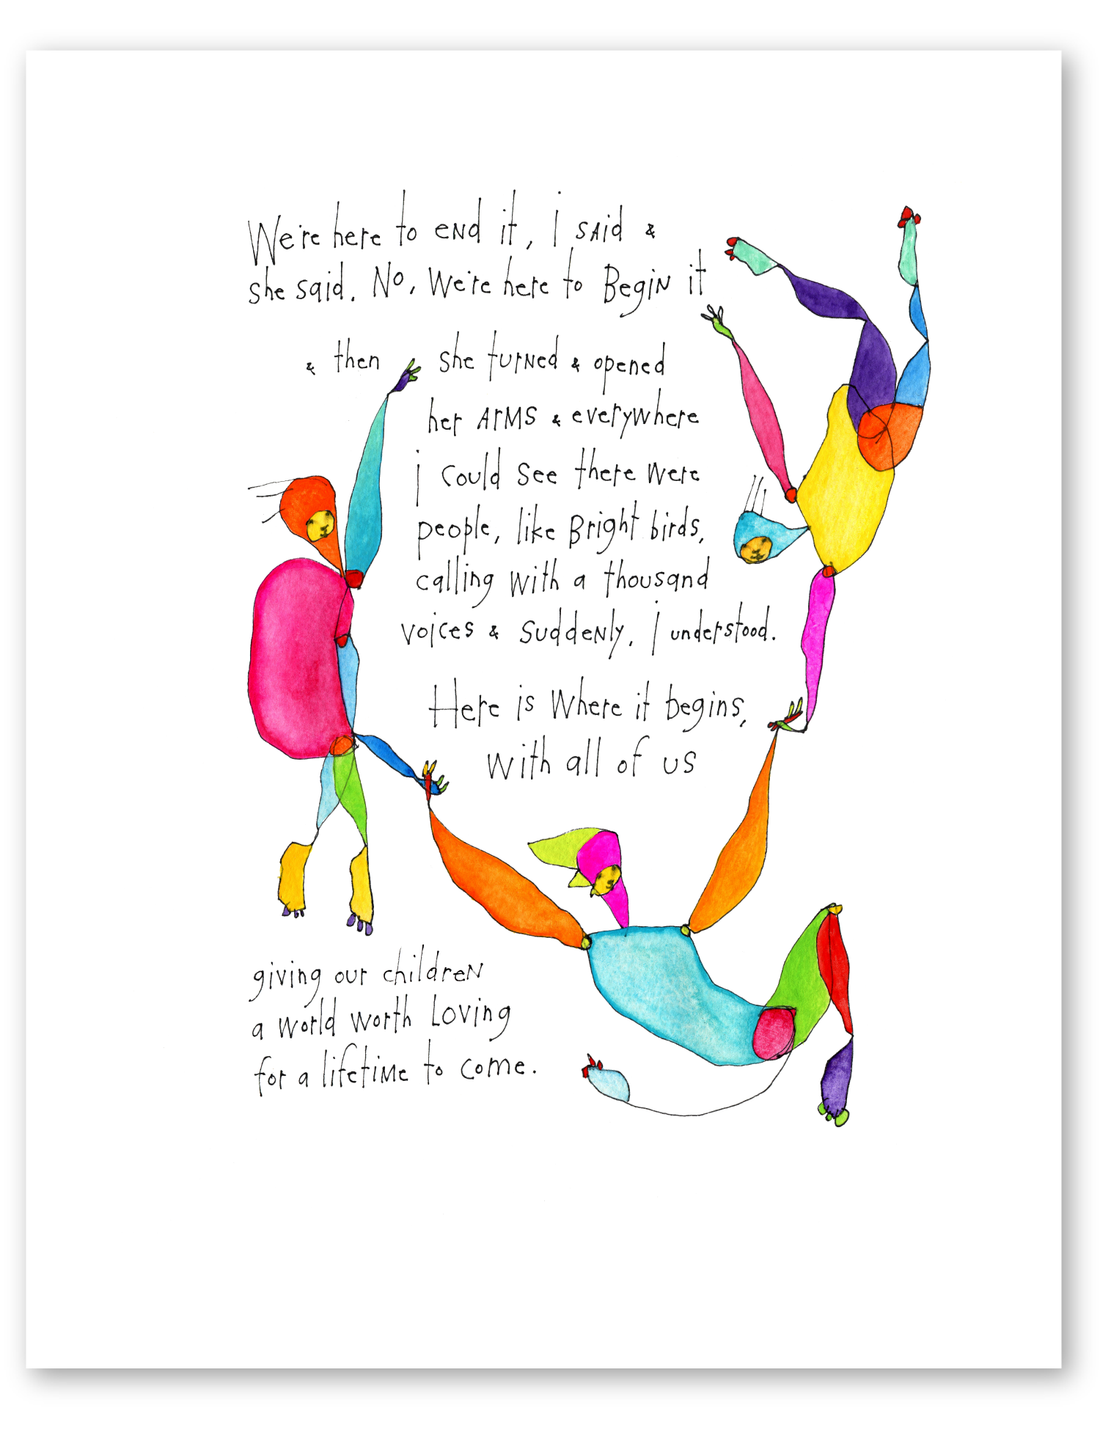 We're here to end it, I said &
she said, No, We're here to Begin it
& then she turned & opened
her arms & everywhere
I could see there were
people, like Bright birds,
calling with a thousand
voices & suddenly, I understood.
Here is Where it begins,
with all of us
giving our children
a world worth Loving
for a lifetime to come.